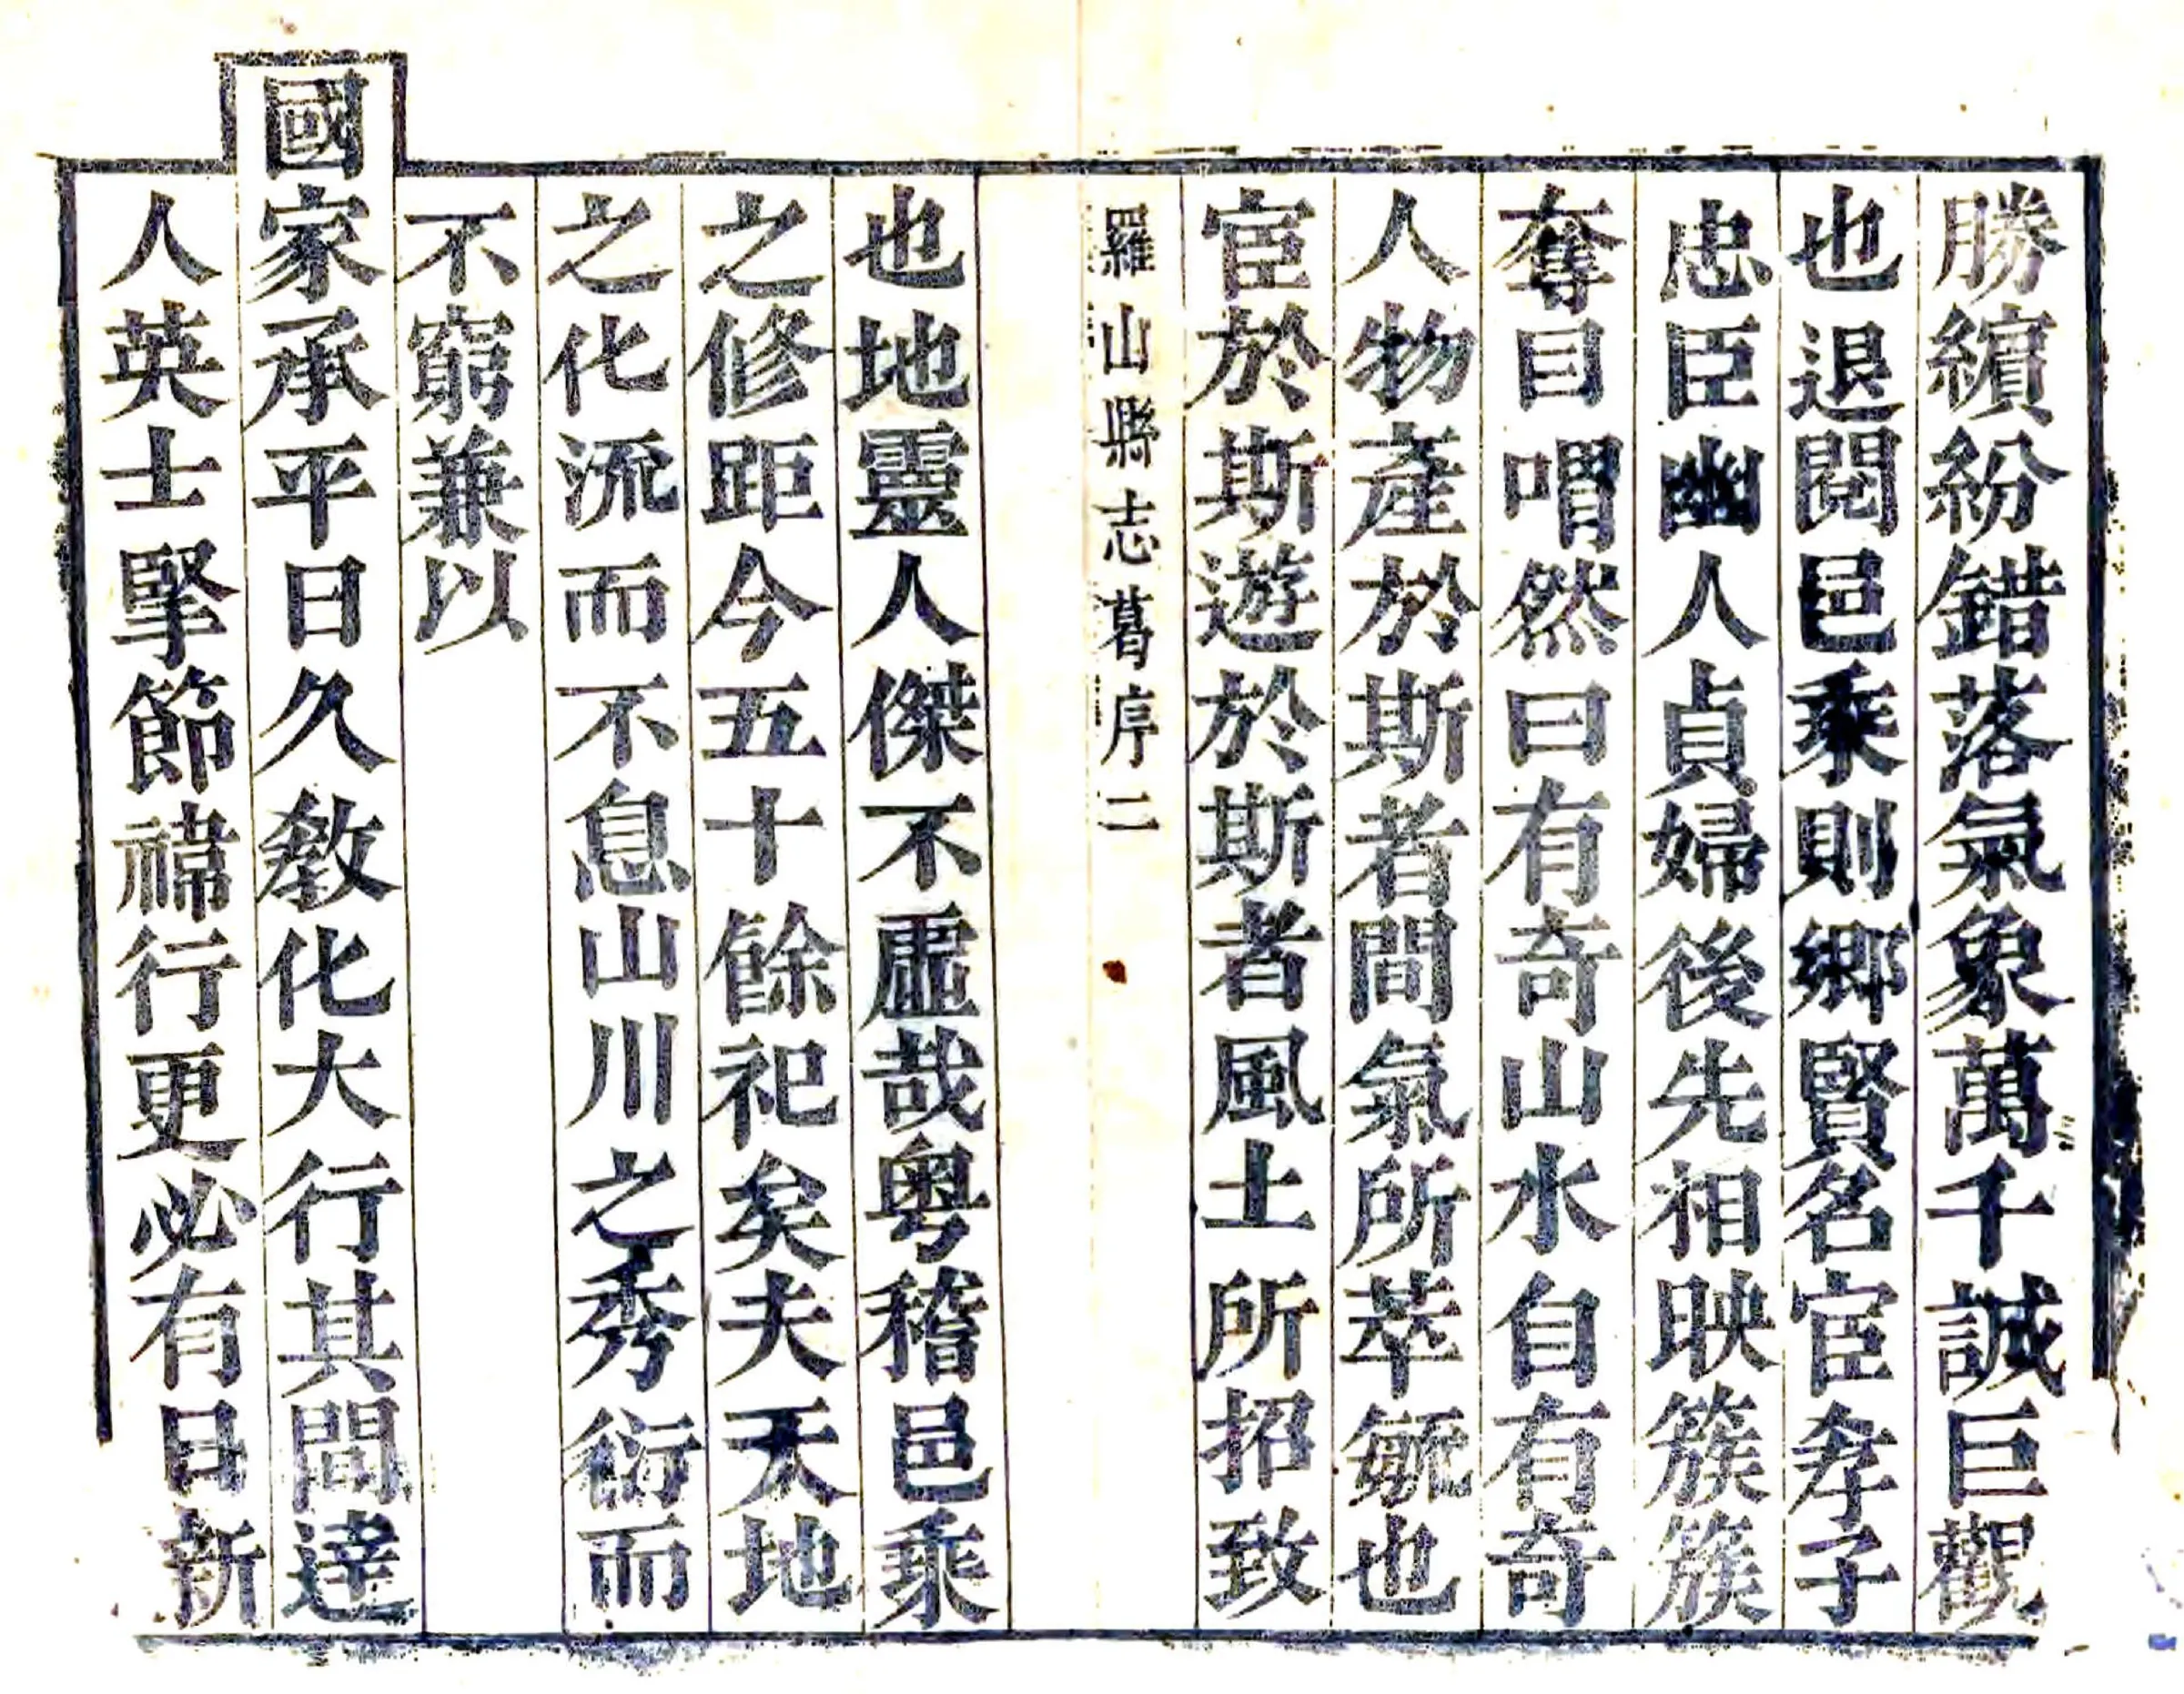 勝繽紛錯落氣象萬千誠巨觀
也退閱邑乘則鄉賢名宦孝子
忠臣幽人貞婦後先相映簇簇
奪目喟然曰有奇山水自有奇
人物產於斯者間氣所萃毓也
宦於斯遊於斯者風土所招致
羅山縣志葛序二
也地靈人傑不虛哉粵稽邑乘
之修距今五十餘祀矣夫天地
之化流而不息山川之秀衍而
不窮兼以
國家承平日久敎化大行其間達
人英士擎節禕行更必有日新